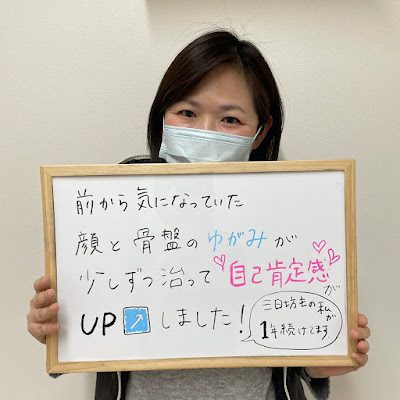 前から気になっていた
顔と骨盤のゆがみが
少しずつ治って"自己肯定感"が
UP↗しました!
三日坊主の私が
1年続けてます